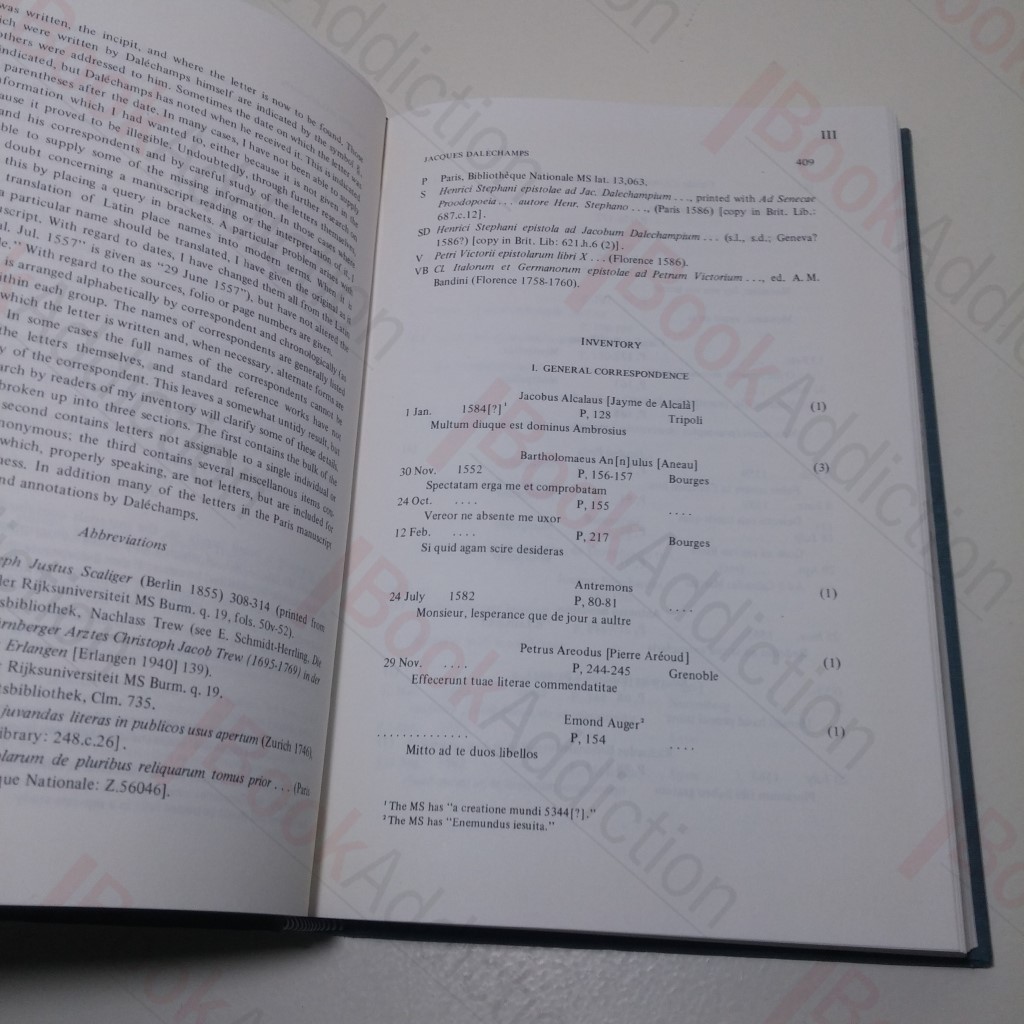 was written, the incipit, and where the letter is now to be found. Those
which were written by Daléchamps himself are indicated by the symbol
others were addressed to him. Sometimes the date on which the letter was
indicated, but Daléchamps has noted when he received it. This is indicated
parentheses after the date. In many cases, I have not been able to supply
information which I had wanted to, either because it is not given in the
because it proved to be illegible. Undoubtedly, through further research on
and his correspondents and by careful study of the letters themselves,
able to supply some of the missing information. In those cases where
doubt concerning a manuscript reading or the interpretation of it, I
this by placing a query in brackets. A particular problem arises with
translation of Latin place names into modern terms. When it is
a particular name should be translated, I have given the original as it
script. With regard to dates, I have changed them all from the Latin
al. Jul. 1557" is given as "29 June 1557"), but have not altered the
e." With regard to the sources, folio or page numbers are given.
is arranged alphabetically by correspondent and chronologically (as
within each group. The names of correspondents are generally listed
which the letter is written and, when necessary, alternate forms are
In some cases the full names of the correspondents cannot be
the letters themselves, and standard reference works have not
y of the correspondent. This leaves a somewhat untidy result, but
arch by readers of my inventory will clarify some of these details.
broken up into three sections. The first contains the bulk of the
second contains letters not assignable to a single individual or
nonymous; the third contains several miscellaneous items con-
which, properly speaking, are not letters, but are included for
ness. In addition many of the letters in the Paris manuscript
nd annotations by Daléchamps.
Abbreviations
eph Justus Scaliger (Berlin 1855) 308-314 (printed from
der Rijksuniversiteit MS Burm. q. 19, fols. 50v-52).
sbibliothek, Nachlass Trew (see E. Schmidt-Herrling, Die
rnberger Arztes Christoph Jacob Trew (1695-1769) in der
Erlangen [Erlangen 1940] 139).
Rijksuniversiteit MS Burm. q. 19.
tsbibliothek, Clm. 735.
juvandas literas in publicos usus apertum (Zurich 1746)
ibrary: 248.c.26].
olarum de pluribus reliquarum tomus prior . . . (Paris
que Nationale: Z.56046].
III
JACQUES DALECHAMPS 409
P Paris, Bibliothêque Nationale MS lat. 13,063.
S Henrici Stephani epistolae ad Jac. Dalechampium . . ., printed with Ad Senecae
Proodopoeia . . . autore Henr. Stephano . . ., (Paris 1586) [copy in Brit. Lib.:
687.c.12].
SD Henrici Stephani epistola ad Jacobum Dalechampium . . . (s.l., s.d.; Geneva?
1586?) [copy in Brit. Lib: 621.h.6 (2)].
V Petri Victorii epistolarum libri X . . . (Florence 1586).
VB Cl. Italorum et Germanorum epistolae ad Petrum Victorium . . ., ed. A. M.
Bandini (Florence 1758-1760).
INVENTORY
I. GENERAL CORRESPONDENCE
Jacobus Alcalaus [Jayme de Alcalà] (1)
1 Jan. 1584[?]¹ P, 128 Tripoli
Multum diuque est dominus Ambrosius
Bartholomaeus An[n]ulus [Aneau] (3)
30 Nov. 1552 P, 156-157 Bourges
Spectatam erga me et comprobatam
24 Oct. . . . . P, 155 . . . .
Vereor ne absente me uxor
12 Feb. . . . . P, 217 Bourges
Si quid agam scire desideras
Antremons (1)
24 July 1582 P, 80-81 . . . .
Monsieur, lesperance que de jour a aultre
Petrus Areodus [Pierre Aréoud] (1)
29 Nov. . . . . P, 244-245 Grenoble
Effecerunt tuae literae commendatitae
Emond Auger² (1)
. . . . . . . . . . . . . . P, 154 . . . .
Mitto ad te duos libellos
¹The MS has "a creatione mundi 5344[?]."
²The MS has "Enemundus iesuita."